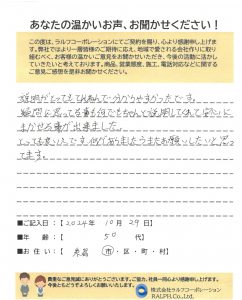 あなたの温かいお声、お聞かせください!
この度は、ラルフコーポレーションにてご契約を賜り、心より感謝申し上げます。弊社ではより一層皆様のご期待に応え、地域で愛される会社作りに取り組むべく、お客様の温かいご意見をお聞かせいただき、今後の活動に活かしていきたいと考えております。商品、営業態度、施工、電話対応などに関するご意見ご感想を是非お聞かせください。
説明がとってもていねいで分かりやすかったです。
疑問に思ってる事も何でもちゃんと説明してくれて安心に
まかせる事が出来ました。
とっても良い人です。何かありましたらまたお願いしたいと思っ
てます。
■ご記入日:【2024年 10月 29日】
■年 齢:【 50 代】
■お住い:【 市・区・町・村】
貴重なご意見誠にありがとうございます。ご協力、社員一同心より感謝申し上げます。
今後ともどうぞよろしくお願いいたします。
株式会社ラルフコーポレーション
RALPH.Co.,Ltd.